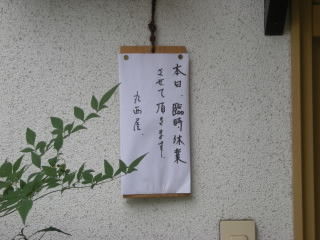 本日、臨時休業
させて頂きます。
九西屋、